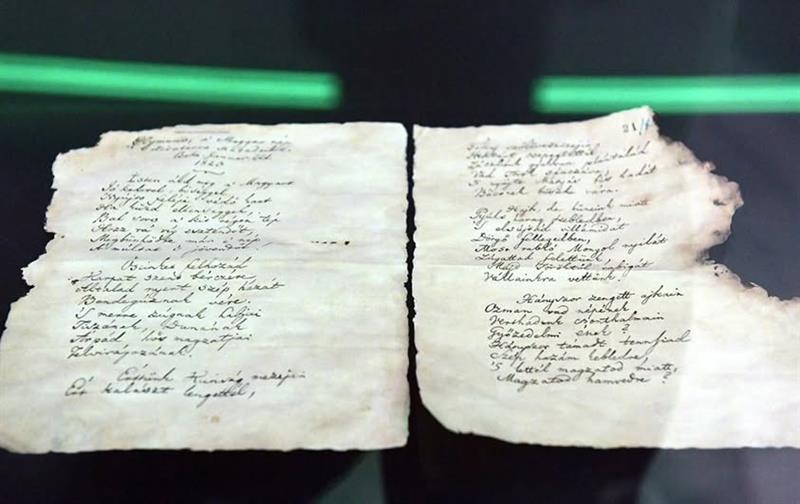 Hymnus, a' Magyar nép
zivataros századaiból
1823
Isten áldd meg a' Magyart
Jó kedvvel, bőséggel,
Nyújts feléje védő kart
Ha küzd ellenséggel,
Bal sors a' kit régen tép
Hozz rá víg esztendőt,
Megbűnhődte már e' nép
A' multat 's jövendőt.
Őseinket felhozád
Kárpát szent bérczére
Általad nyert szép hazát
Bendegúznak vére.
'S merre zúgnak habjai
Tiszának, Dunának
Árpád hős magzatjai
Felvirágozának.
Értünk Kúnság mezejin
Ért kalászt lengettél,
21/
Tokaj szőlővesszején
Nektárt csepegtettél.
Zászlónk gyakran plántálád
Vad Török sánczára,
'S nyögte Mátyás bús hadát
Bécsnek büszke vára.
Hajh, de bűneink miatt
Gyúlt harag kebledben,
'S elsújtád villámidat
Dörgő fellegedben,
Most rabló Mongol nyilát
Zúgattad felettünk
Majd Töröktől rabigát
Vállainkra vettünk.
Hányszor zengett ajkain
Ozman vad népének
Vert hadunk csonthalmain
Győzedelmi ének?
Hányszor támadt tenfiad
Szép hazám kebledre,
'S lettél magzatod miatt,
Magzatod hamvedre?